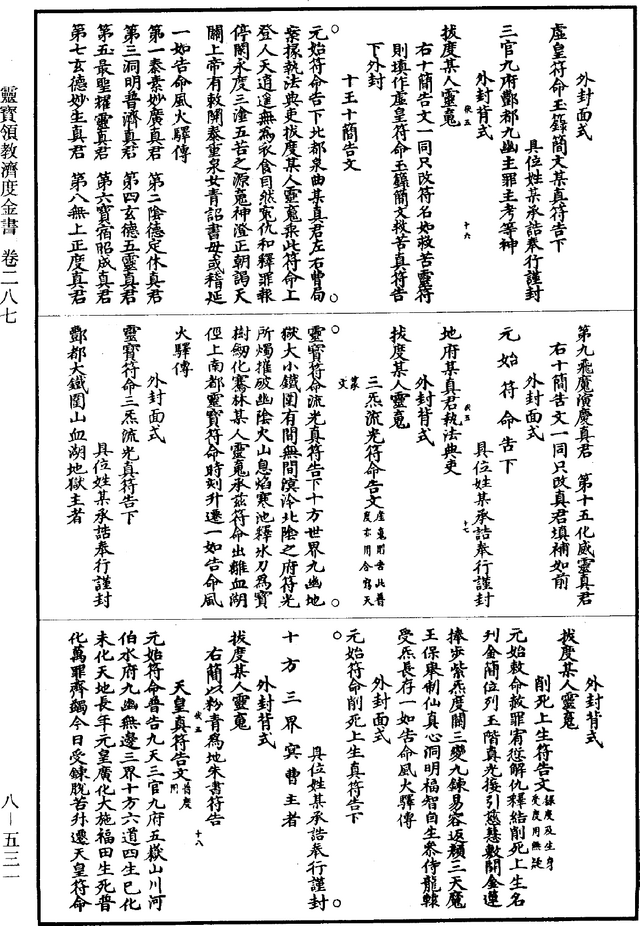 外封面式
虛皇符命玉籙簡文某真符告下
具位姓某承誥奉行謹封
三官九府酆都九幽主罪主考等神
外封背式
拔度某人靈魂
右十簡告文一同只改符名如救苦靈符
則填作虛皇符命玉籙簡文救苦真符告
下外封
十王十簡告文
元始符命告下北都泉曲某真君左右曹局
案掾執法典吏拔度某人靈魂乘此符命上
登人天逍遙無為衣食自然冤仇和釋罪報
停閑永度三塗五苦之源魂神澄正朝謁天
關上帝有敕開泰重泉女青詔書毋或稽延
一如告命風火驛傳
第一泰素妙廣真君　第二陰德定休真君
第三洞明普濟真君　第四玄德五靈真君
第五最聖耀靈真君　第六寶宿昭成真君
第七玄德妙生真君　第八無上正度真君
第九飛魔演慶真君　第十五化威靈真君
右十簡告文一同只改真君填補如前
外封面式
元始符命告下
具位姓某承誥奉行謹封
地府某真君執法典吏
外封背式
拔度某人靈魂
三炁流光符命告文
靈寶符命流光真符告下十方世界九幽地
獄大小鐵圍有間無間溟泠北陰之府符光
所燭摧破幽陰火山息焰寒池釋冰刀為寶
樹劒化騫林某人靈魂承茲符命出離血湖
徑上南都靈寶符命時刻升遷一如告命風
火驛傳
外封面式
靈寶符命三炁流光真符告下
具位姓某承誥奉行謹封
酆都大鐵圍山血湖地獄主者
外封背式
拔度某人靈魂
削死上生符告文
元始敕命赦罪宥愆解仇釋結削死上生名
列金簡位列玉階真光接引慈慧敷開金蓮
捧步紫炁度關三變九鍊易容返顏三天魔
王保舉制仙真心洞明福智自生參侍龍轅
受炁長存一如告命風火驛傳
外封面式
元始符命削死上生真符告下
具位姓某承誥奉行謹封
十方三界冥曹主者
外封背式
拔度某人靈魂
右簡以粉青為地朱書符告
天皇真符告文
元始符命普告九天三官九府五嶽山川河
伯水府九幽無邊三界十方六道四生已化
未化天地長年元皇廣化大施福田生死普
化萬罪齊蠲今日受鍊脫若升遷天皇符命
靈寶領教濟度金書　卷二八七
八—五三一